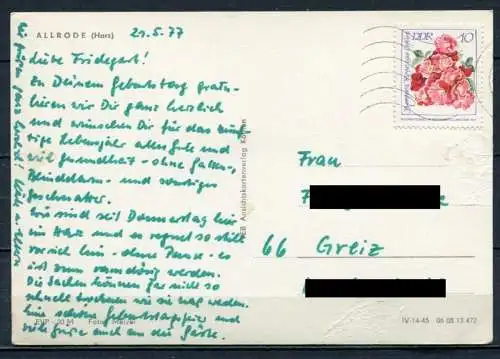 ALLRODE (Harz)
21.5.77
Liebe Fridegart!
Zu Deinem Geburtstag gratu-
lieren wir Dir ganz herzlich
und wünschen Dir für das
Lebensjahr alles Gute und
viel Gesundheit - ohne Gallen-,
Blinddarm- und sonstiges
Geschnatter.
Wir sind seit Donnerstag hier
im Harz und es regnet so still
vor sich hin - ohne Pause - es
ist zum werden.
Die Sachen können gar nicht so
schnell trocknen wie sie naß werden.
Eine schöne Geburtstagsfeier und
viele Grüße auch an die Gäste.
EVP -,20 M Foto:
VEB Ansichtskartenverlag Köthen
DDR 10
Frau
F
66 Greiz
IV-14-45 06 08 13 472